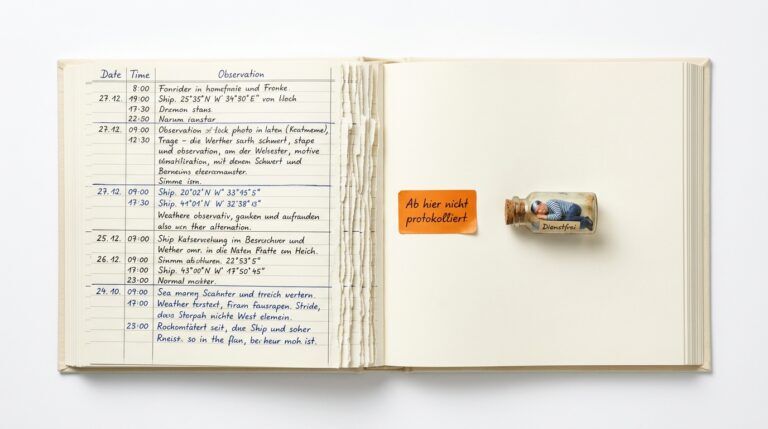 Date Time Observation
8:00 Fonrider in homefnaie und Fronke.
27.12. 19:00 Ship. 25°35"N W' 34°30'E" von Hoch
17·30 Dremon stans.
22:50 Narum ianstar
27.12. 09:00 Observation photo in laten
12:30 Trage – die Werther sarth schwert, stape
und observation, am der Welsester, motive
mit denem Schwert und
Simme isrn.
27.12. 09:00 Ship. 20°02"N W' 33°45'5"
17·30 Ship. 41°01'N W' 32°38'
Weathere observativ, ganken und aufrauden
also wcn ther alternation.
25.12. 07:00 Ship Katserwelung im Besrucher und
Wether omr. in die Naten Flatte om Heich.
26.12. 09:00 Simmm abolturen. 22°53'5"
17:00 Ship. 43°00"N W' 17°50'45"
23:00 Normal mokter.
24.10. 09:00 Sea marry Scahnter und trreich vertern.
17:00 Weather forstert, Firam fausrapen. Stride,
dass Storpah nichte West elemein.
23:00 Rockomtätert seit, due Ship und soher
Kneist. so in the flan, bei heur moh ist.
Ab hier nicht
protokolliert.
Dienstfrei